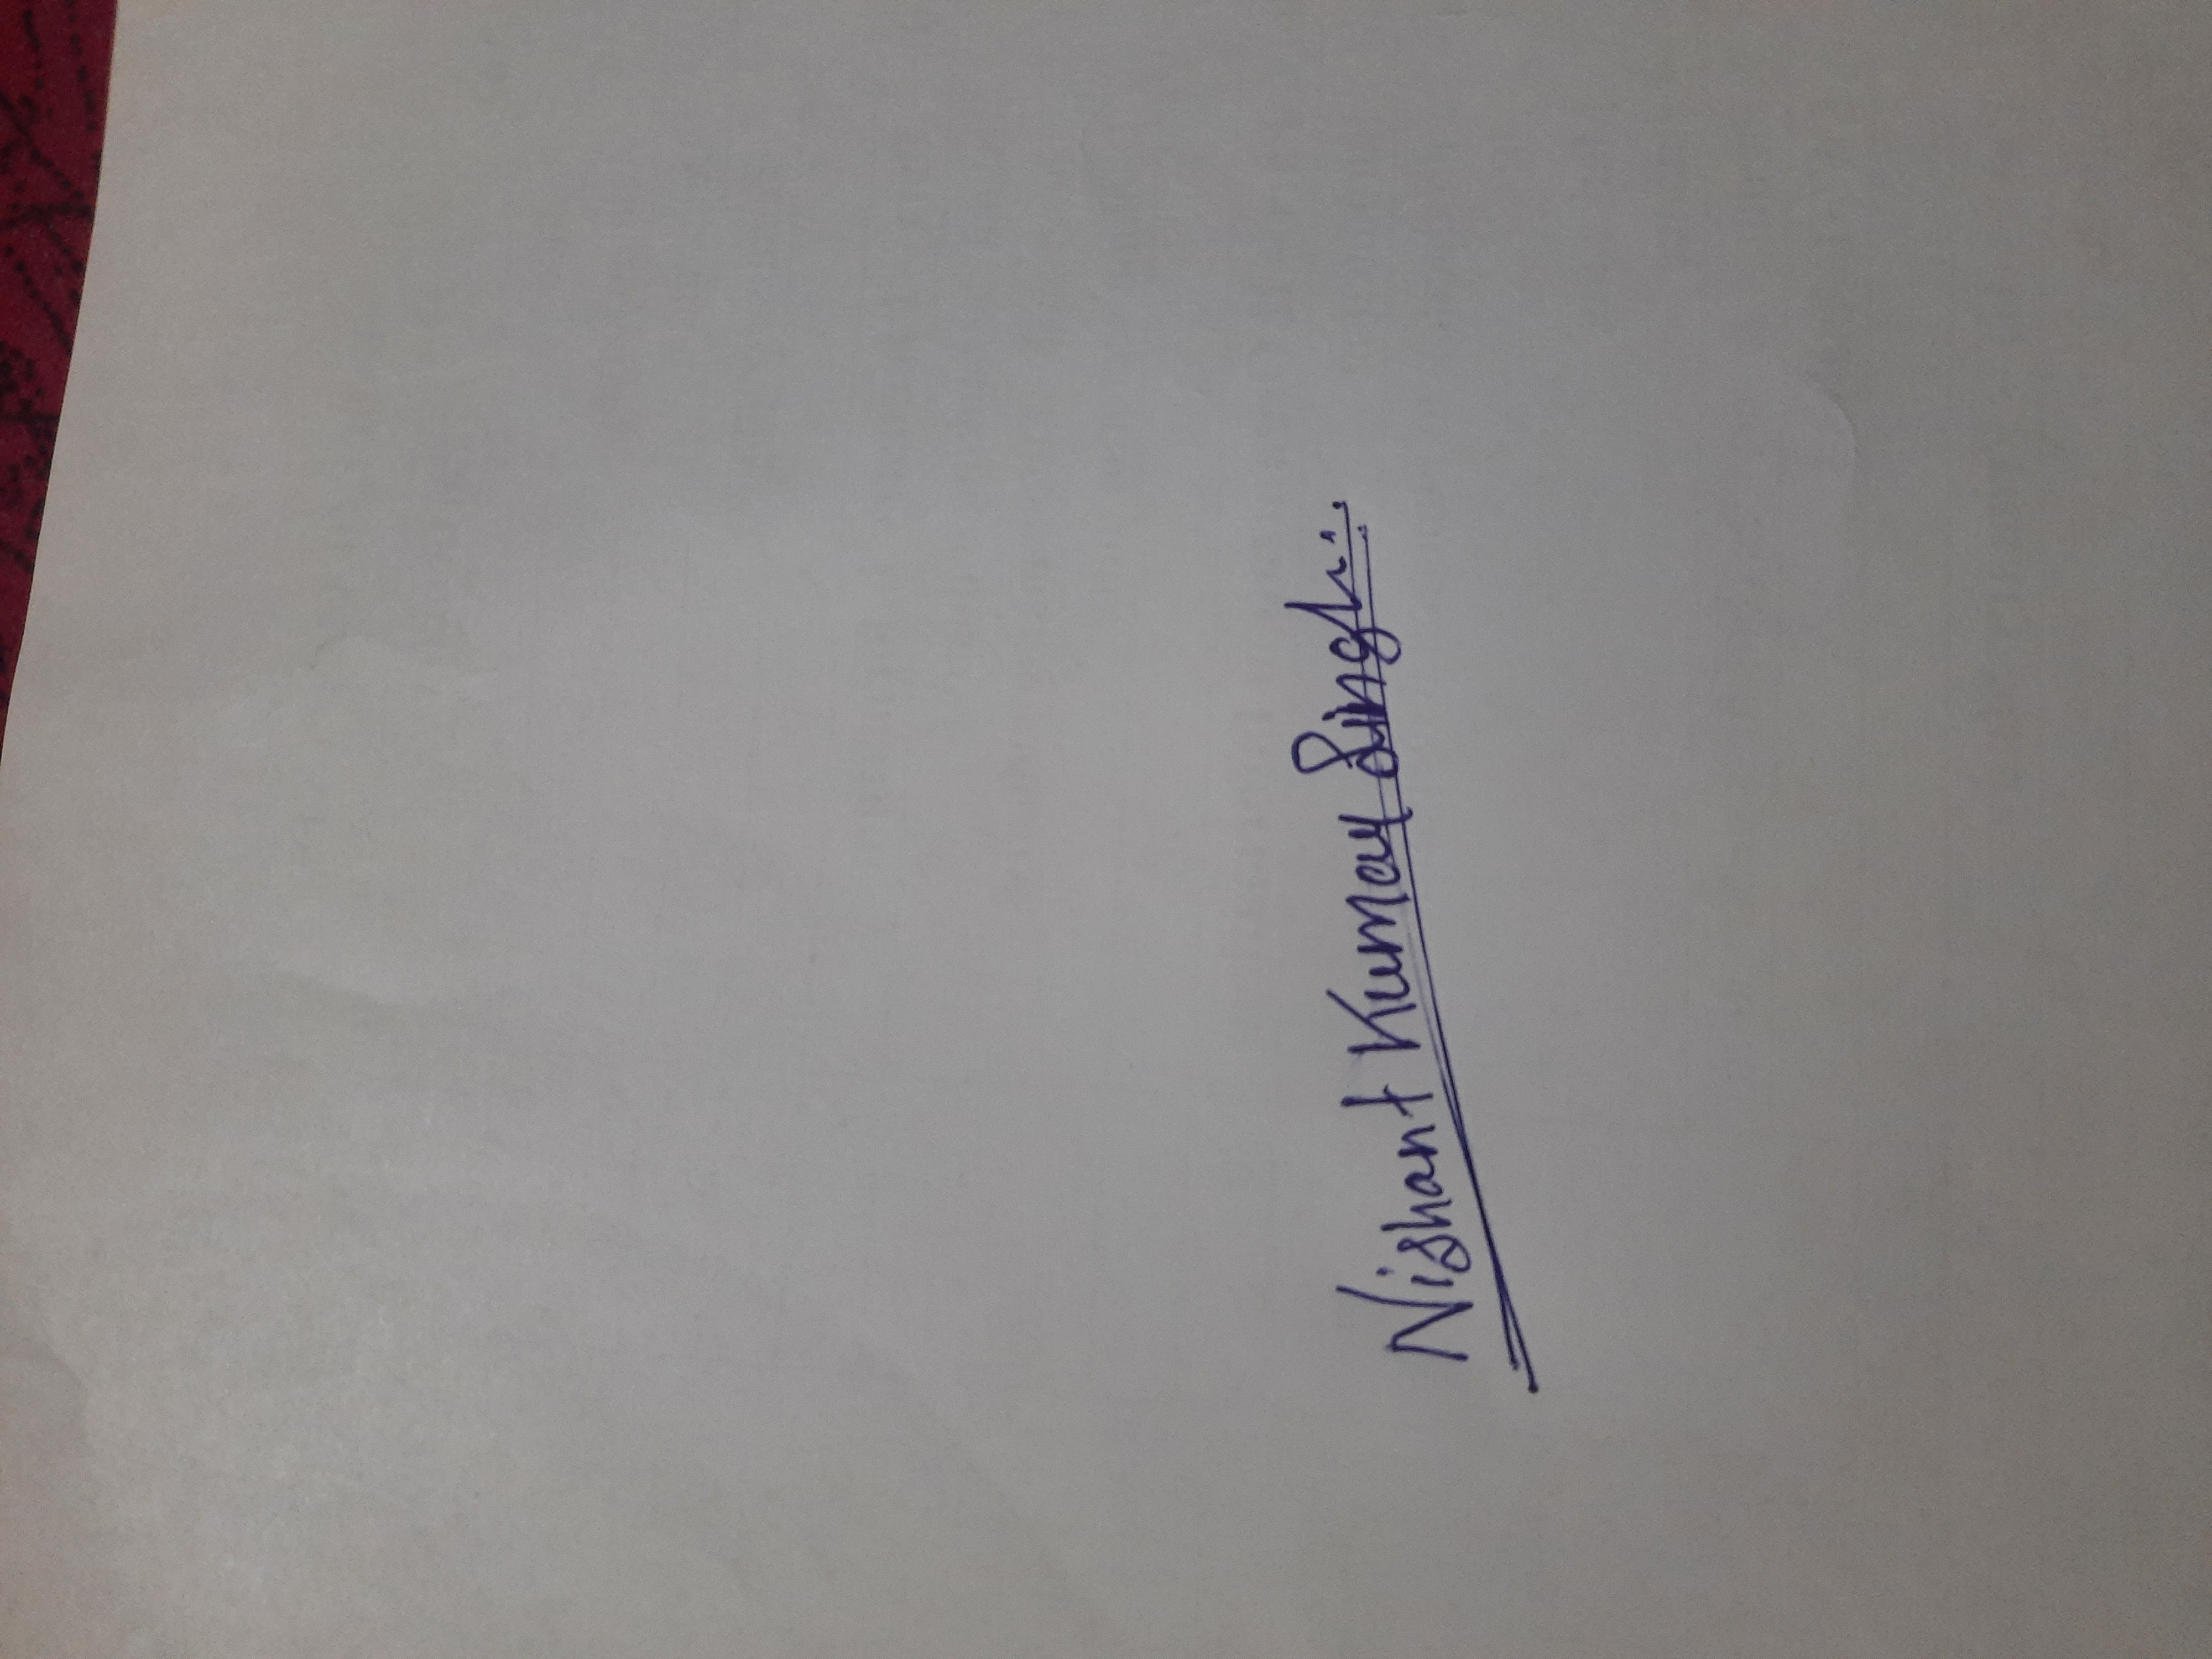 Nishant Kumar Singh...